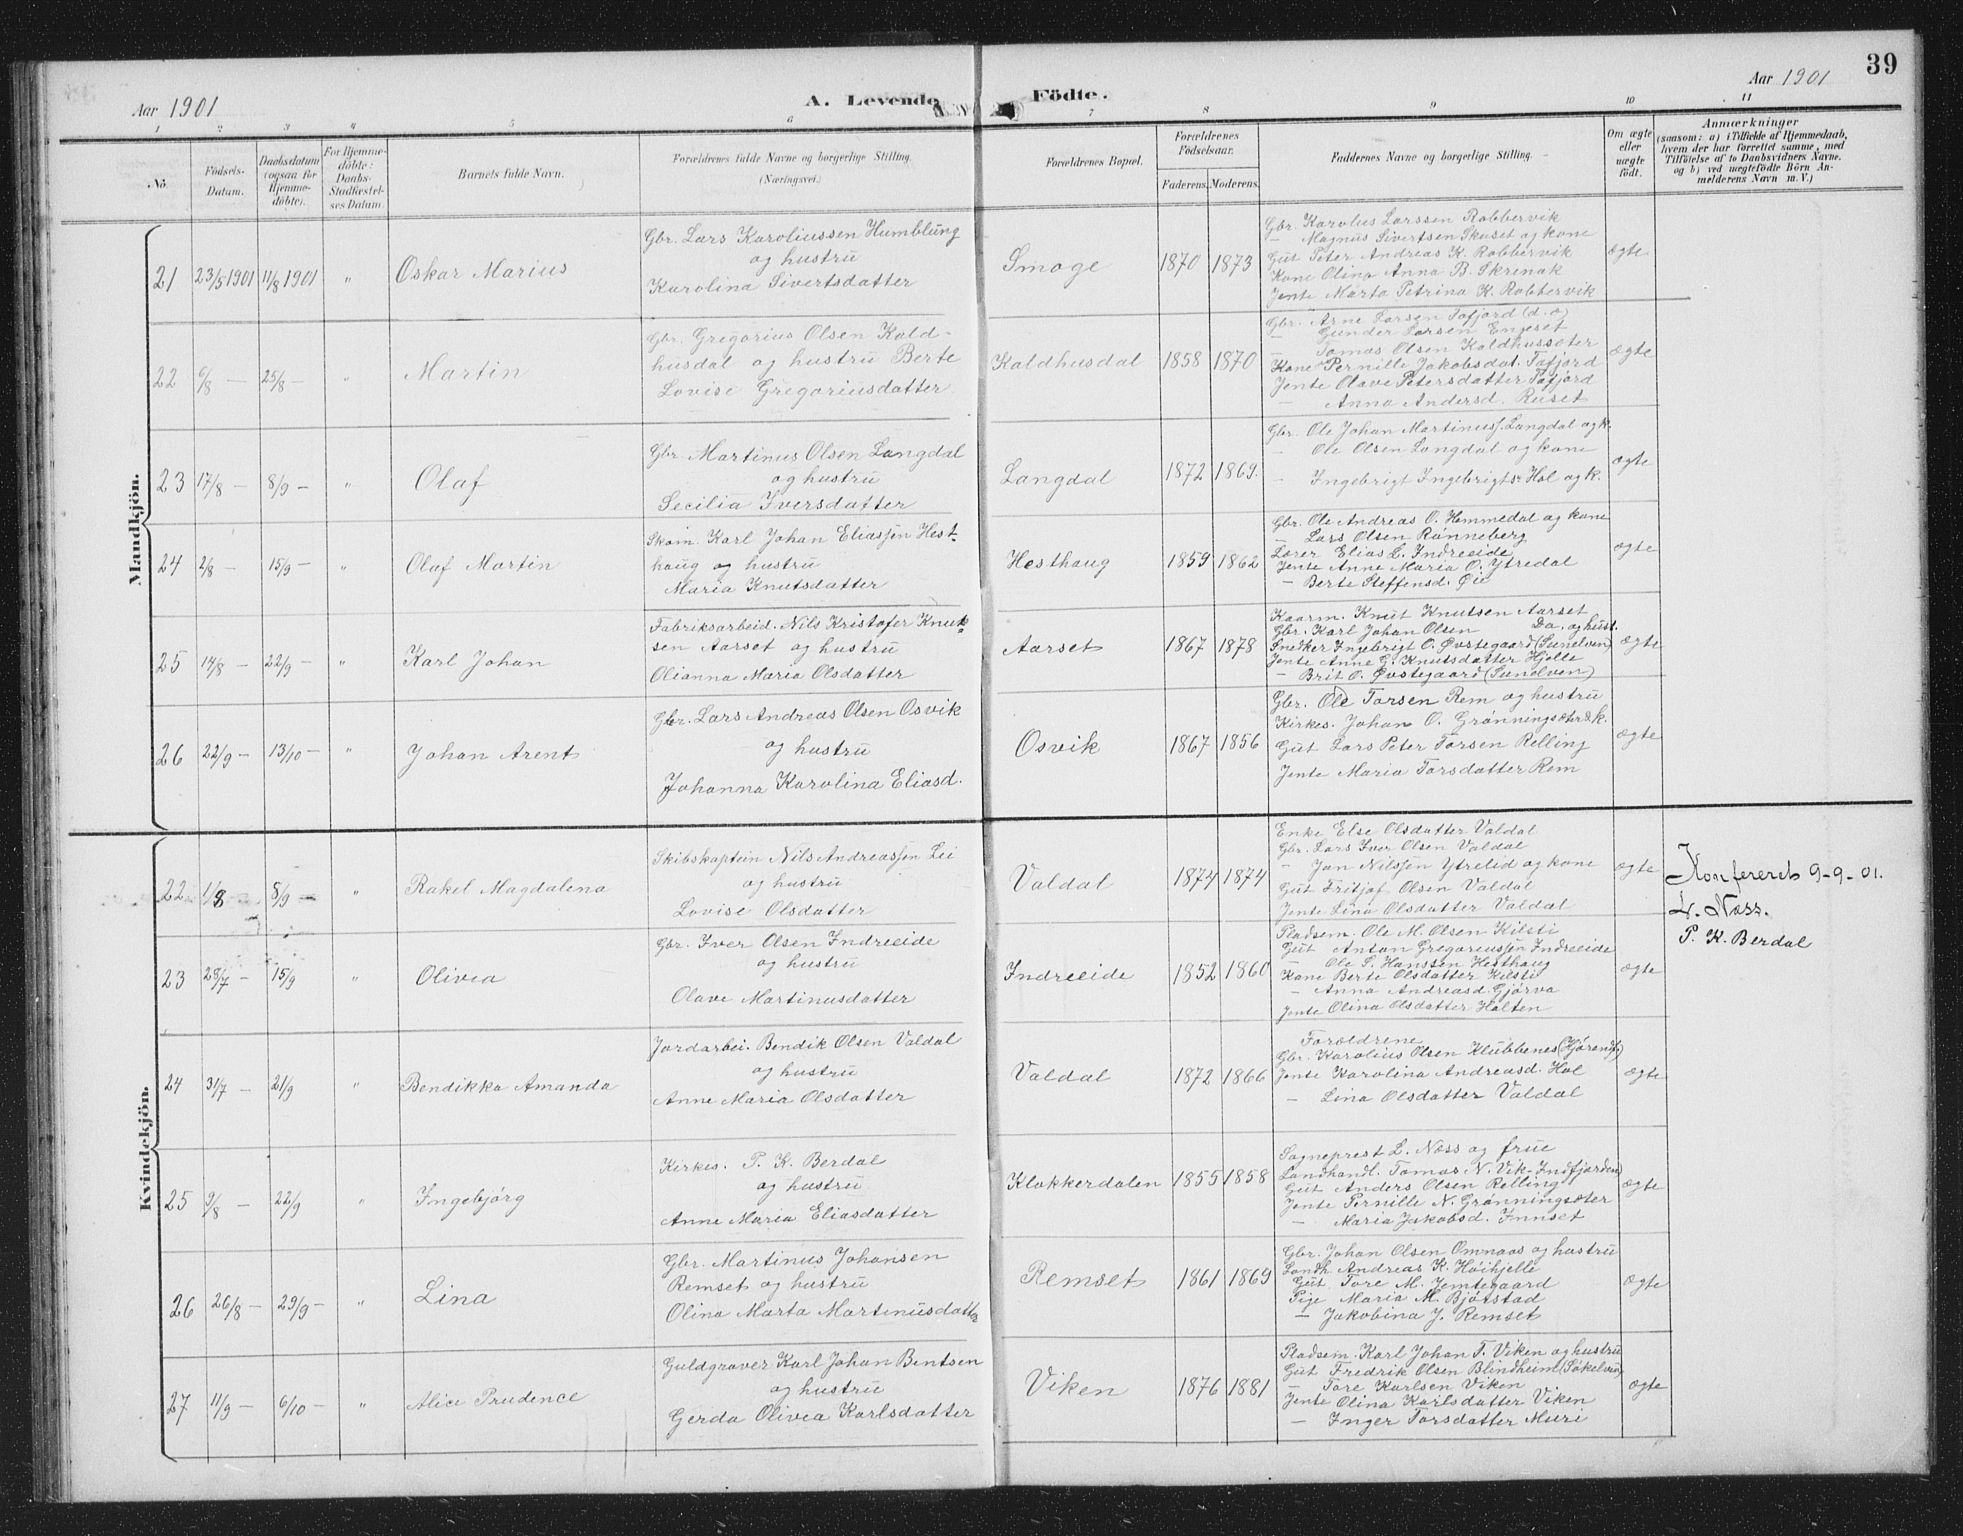 39
Aar 1901
A. Levende
Födte.
Aar 1901
1 2 3 4 5 6 7 8 9 10 11
No.
Födsels-
Datum.
Daabsdatum
(ogsaa for
Hjemme-
döbte).
For Hjemme-
döbte:
Daabs-
Stadfæstel-
ses Datum.
Barnets fulde Navn.
Forældrenes fulde Navne og borgerlige Stilling.
(Næringsvei.)
Forældrenes Bopæl.
Forældrenes
Födselsaar.
Faderens. Moderens.
Faddernes Navne og borgerlige Stilling.
Om ægte
eller
uægte
födt.
Anmærkninger
(saasom: a) i Tilfælde af Hjemmedaab,
hvem der har forrettet samme, med
Tilföielse af to Daabsvidners Navne.
og b) ved uægtefödte Börn An-
melderens Navn m. V.)
Mandkjön.
21 23/5 1901 11/8 1901 " Oskar Marius
Gbr. Lars Karoliussen Humblung
og hustru
Karolina Sivertsdatter
Smoge 1870 1873
Gbr. Karolus Larssen Robbervik
– Magnus Sivertsen Skuset og kone
Gut Peter Andreas K. Robbervik
Kone Oline Anna B. Skrenak
Jente Marta Petrina K. Robbervik
ægte
22 6/8 – 25/8 – " Martin
Gbr. Gregorius Olsen Kald-
husdal og hustru Berte
Lovise Gregoriusdatter
Kaldhusdal 1858 1870
Gbr. Arne Larsen Tafjord (d. o)
– Gunder Larsen Engeset
– Tomas Olsen Kaldhussæter
Kone Pernille Jakobsdat. Tafjord
Jente Olave Petersdatter Tafjord
– Anna Andersd. Ruset
ægte
23 17/8 – 8/9 – " Olaf
Gbr. Martinus Olsen Langdal
og hustru
Secilia Iversdatter
Langdal 1872 1869.
Gbr. Ole Johan Martinuss. Langdal og k.
– Ole Olsen Langdal og kone
– Ingebrigt Ingebrigts. Hol og k.
ægte
24 2/8 – 15/9 – " Olaf Martin
Skom. Karl Johan Eliassen Hest-
haug og hustru
Maria Knutsdatter
Hesthaug 1859 1862
Gbr. Ole Andreas O. Hemmedal og kone
– Lars Olsen Rønneberg
Lærer Elias L. Indreeide
Jente Anne Maria O. Ytredal
– Berte Steffensd. Øie
ægte
25 14/8 – 22/9 – " Karl Johan
Fabriksarbeid. Nils Kristofer Knut-
sen Aarset og hustru
Olianna Maria Olsdatter
Aarset 1867 1878
Kaarm. Knut Knutsen Aarset
Gbr. Karl Johan Olsen Do. og hust.
Snedker Ingebrigt O. Øvstegaard (Sunelven)
Jente Anne G. Knutsdatter Hjelle
– Brit O. Øvstegaard (Sunelven)
ægte
26 22/9 – 13/10 – " Johan Arent
Gbr. Lars Andreas Olsen Osvik
og hustru
Johanna Karolina Eliasd.
Osvik 1867 1856
Gbr. Ole Torsen Rem og hustru
Kirkes. Johan O. Grønningsæter & k.
Gut Lars Peter Torsen Relling
Jente Maria Torsdatter Rem
ægte
Kvindekjön.
22 1/8 8/9 – " Rakel Magdalena
Skibskaptein Nils Andreassen Lei
og hustru
Lovise Olsdatter
Valdal 1874 1874
Enke Else Olsdatter Valdal
Gbr. Lars Iver Olsen Valdal
– Jan Nilssen Ytrelid og kone
Gut Fritjof Olsen Valdal
Jente Lina Olsdatter Valdal
ægte
Konfereret 9-9-01.
L. Næss.
P. K. Berdal
23 28/7 – 15/9 " Olivea
Gbr. Iver Olsen Indreeide
og hustru
Olave Martinusdatter
Indreeide 1852 1860
Pladsem. Ole M. Olsen Kilsti
Gut Anton Gregoriussen Indreeide
– Ole P. Hanssen Hesthaug
Kone Berte Olsdatter Kilsti
– Anna Andreasd. Gjørva
Jente Olina Olsdatter Halten
ægte
24 31/7 – 21/9 " Bendikka Amanda
Jordarbei. Bendik Olsen Valdal
og hustru
Anne Maria Olsdatter
Valdal 1872 1866
Forældrene
Gbr. Karolius Olsen Klubbenes (Hjørendf.)
Jente Karolina Andreasd. Hol
– Lina Olsdatter Valdal
ægte
25 9/8 – 22/9 " Ingebjørg
Kirkes. P. K. Berdal
og hustru
Anne Maria Eliasdatter
Klokkerdalen 1855 1858
Sogneprest L. Næss og frue
Landhandl. Tomas N. Vik-Indfjorden)
Gut Anders Olsen Relling
Jente Pernille N. Grønningsæter
– Maria Jakobsd. Innset
ægte
26 26/8 – 29/9 – " Lina
Gbr. Martinus Johansen
Remset og hustru
Olina Marta Martinusdatter
Remset 1861 1869
Gbr. Johan Olsen Omnaas og hustru
Landh. Andreas K. Høihjelle
Gut Tore M. Jemtegaard
Pige Maria M. Bjørstad
– Jakobina J. Remset
ægte
27 11/9 – 6/10 – " Alice Prudence
Guldgraver Karl Johan Bentsen
og hustru
Gerda Olivea Karlsdatter
Viken 1876 1881
Pladsem. Karl Johan T. Viken og hustru
Gut Fredrik Olsen Blindheim (Søkelven)
– Tore Karlsen Viken
Jente Olina Karlsdatter Viken
– Inger Torsdatter Muri
ægte